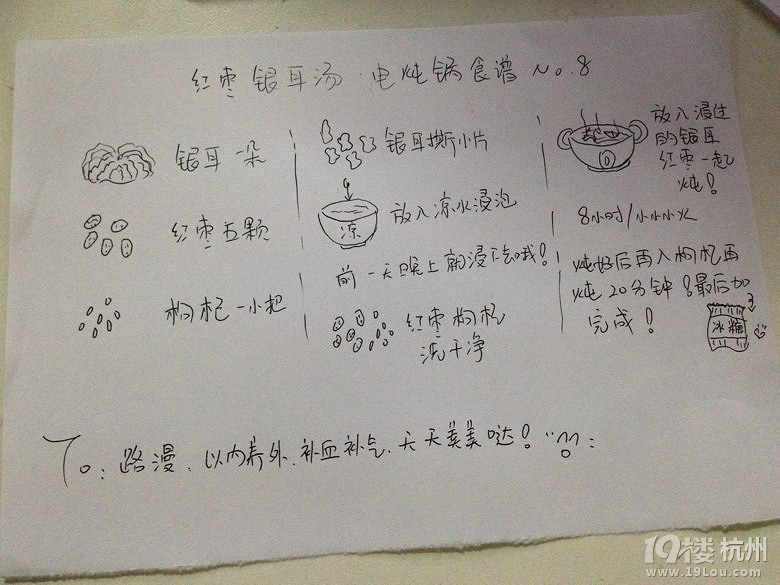 红枣银耳汤·电炖锅食谱 No.8
银耳一朵
红枣五颗
枸杞一小把
银耳撕小片
凉
放入凉水浸泡
前一天晚上就浸下去哦!
红枣枸杞
洗干净
放入浸过
的银耳
红枣一起
炖!
8小时/小小小火
炖好后再入枸杞再
炖20分钟!最后加
冰糖
完成!
To:路漫、以内养外、补血补气、天天美美哒!
19楼杭州
www.19Lou.com